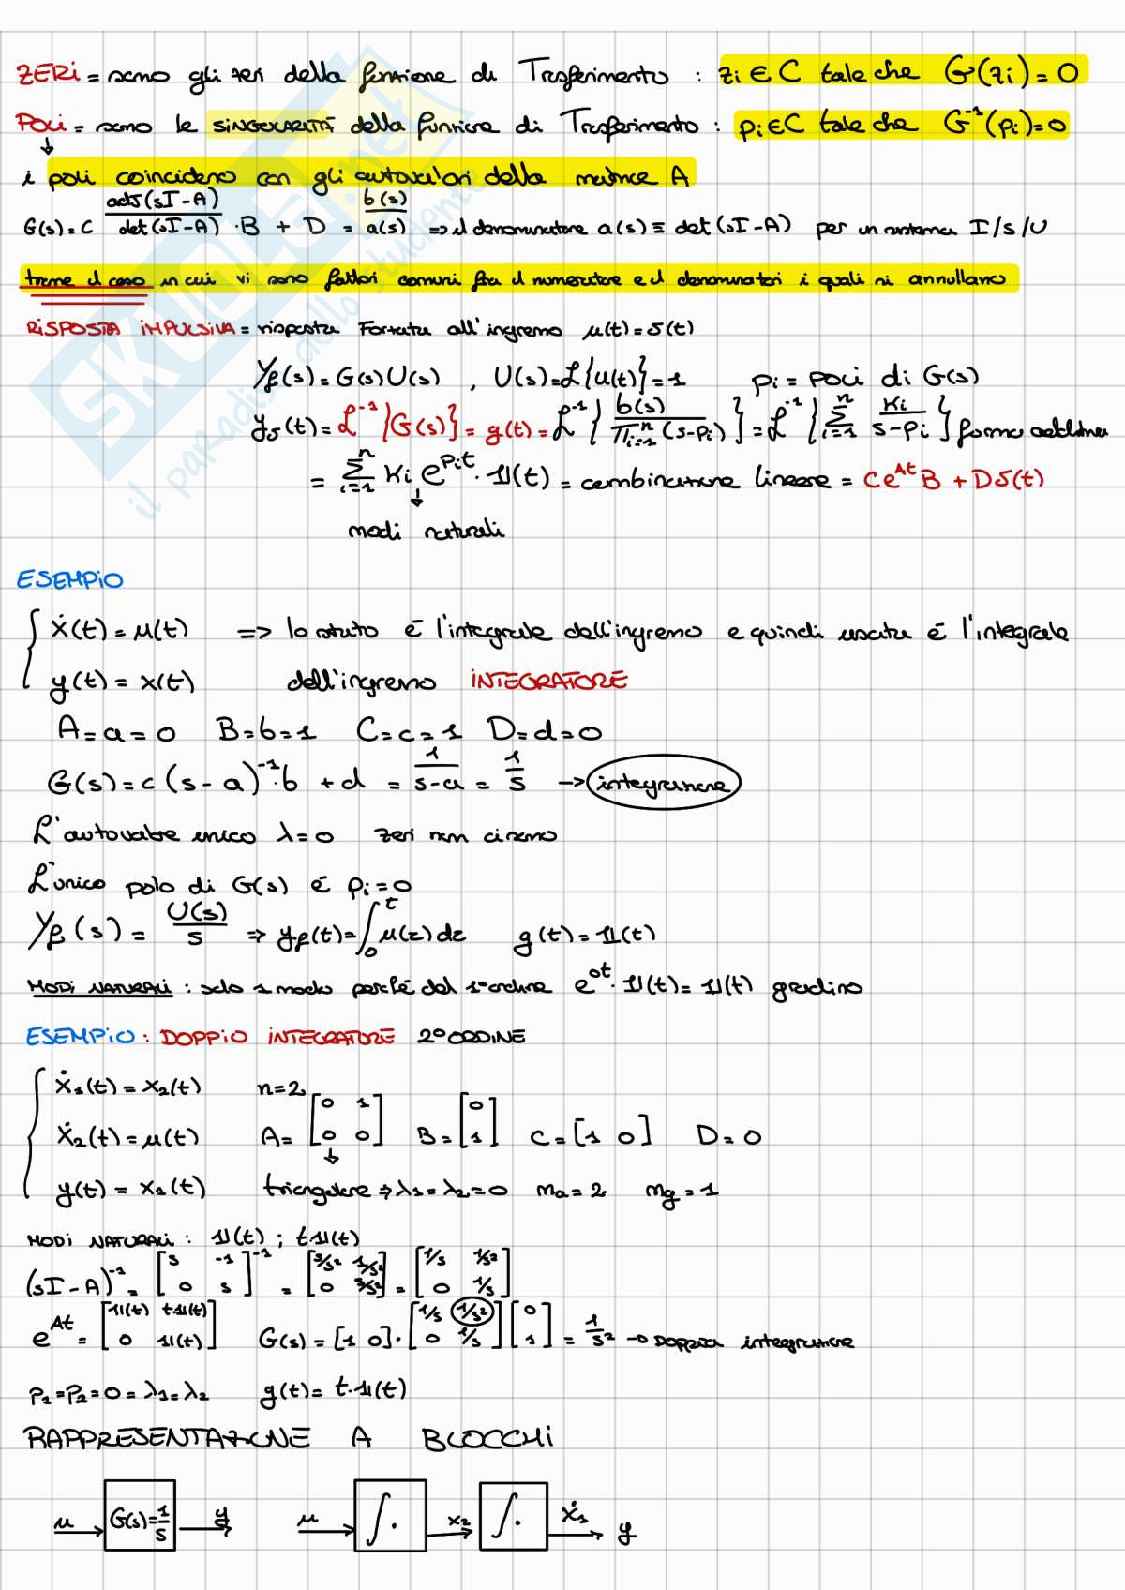 ZERI = sono gli zeri della funzione di Trasferimento : zi ∈ C tale che G(zi) = 0
POLI = sono le SINGOLARITÀ della funzione di Trasferimento : pi ∈ C tale che G⁻¹(pi) = 0
↓
i poli coincidono con gli autovalori della matrice A
G(s) = C adJ(sI-A)/det(sI-A) · B + D = b(s)/a(s) ⇒ il denominatore a(s) ≡ det(sI-A) per un sistema I/S/U
tranne il caso in cui vi sono fattori comuni fra il numeratore e il denominatori i quali si annullano
RISPOSTA IMPULSIVA = risposta Forzata all'ingresso u(t) = δ(t)
Yf(s) = G(s)U(s) , U(s) = L{u(t)} = 1 pi = POLI di G(s)
yδ(t) = L⁻¹{G(s)} = g(t) = L⁻¹{b(s)/∏ⁿᵢ₌₁(s-pi)} = L⁻¹{∑ⁿᵢ₌₁ Ki/s-pi} forma
= ∑ⁿᵢ₌₁ Ki e^(pi t) · 1(t) = combinazione lineare = Ce^(At)B + Dδ(t)
↓
modi naturali
ESEMPIO
ẋ(t) = u(t) => lo stato è l'integrale dell'ingresso e quindi uscita è l'integrale
y(t) = x(t) dell'ingresso INTEGRATORE
A = a = 0 B = b = 1 C = c = 1 D = d = 0
G(s) = c(s-a)⁻¹·b + d = 1/s-a = 1/s → integrazione
L'autovalore unico λ = 0 zeri non ci sono
L'unico polo di G(s) è pi = 0
Yf(s) = U(s)/s ⇒ yf(t) = ∫₀ᵗ u(τ)dτ g(t) = 1(t)
MODI NATURALI : solo 1 modo perché del 1° ordine e^(0t) · 1(t) = 1(t) gradino
ESEMPIO : DOPPIO INTEGRATORE 2° ORDINE
ẋ₁(t) = x₂(t) n=2
ẋ₂(t) = u(t) A = [0 1; 0 0] B = [0; 1] C = [1 0] D = 0
↓
y(t) = x₁(t) triangolare ⇒ λ₁ = λ₂ = 0 ma = 2 mg = 1
MODI NATURALI : 1(t) ; t·1(t)
(sI-A)⁻¹ = [s -1; 0 s]⁻¹ = [s/s² 1/s²; 0 s/s²] = [1/s 1/s²; 0 1/s]
e^(At) = [1(t) t·1(t); 0 1(t)] G(s) = [1 0] · [1/s 1/s²; 0 1/s] [0; 1] = 1/s² → DOPPIA integrazione
p₁ = p₂ = 0 = λ₁ = λ₂ g(t) = t·1(t)
RAPPRESENTAZIONE A BLOCCHI
u G(s) = 1/s y u ∫· x₂ ∫· ẋ₁ y
SKUOLA.net
il paradiso dello studente